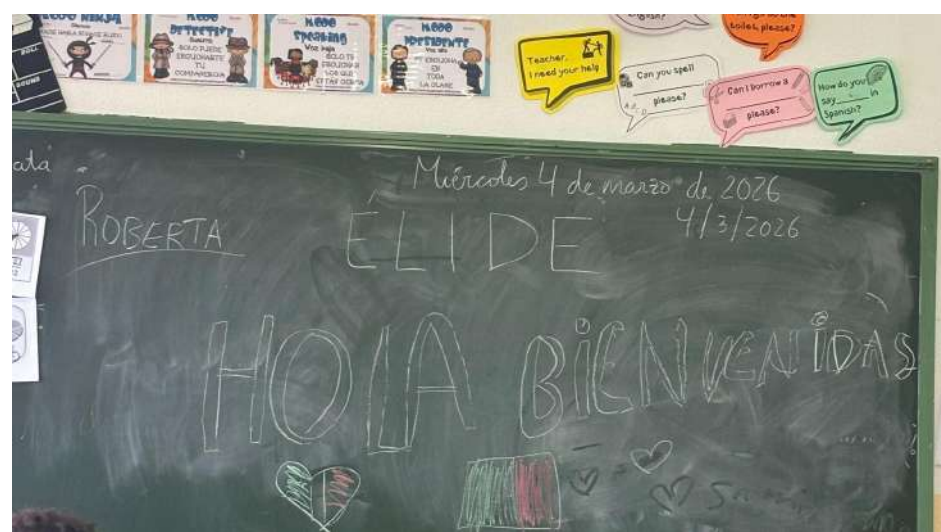 MODO NINJA
MODO DETECTIVE
Susurro
SOLO PUEDE
ESCUCHARTE
TU
COMPAÑERO/A
MODO SPEAKING
Voz baja
SOLO TE
ESCUCHAN
LOS QUE
MODO PRESIDENTE
Voz alta
TE ESCUCHA
EN
TODA
LA CLASE
ROLL
SOUND
Teacher,
I need your help
English?
toilet, please?
Can you spell
please?
Can I borrow a
please?
How do you
say in
Spanish?
Miércoles 4 de marzo de 2026
4/3/2026
ROBERTA
ÉLIDE
HOLA BIENVENIDAS